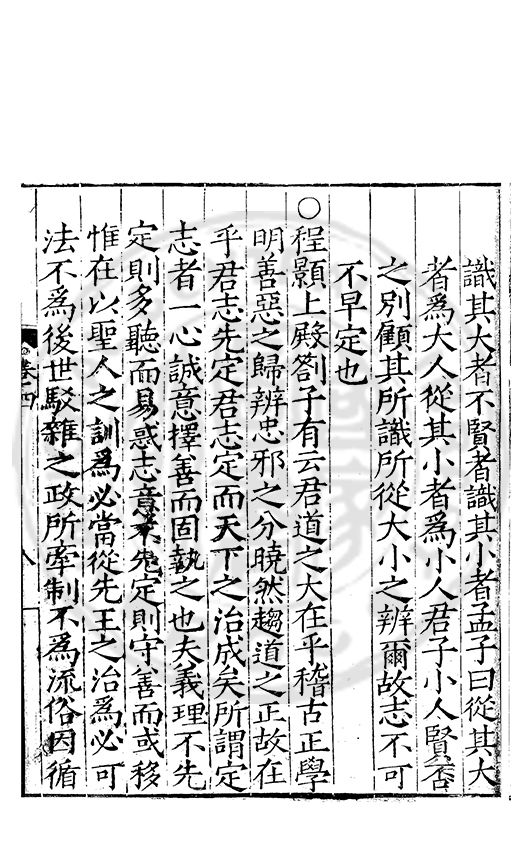 識其大者不賢者識其小者孟子曰從其大
者爲大人從其小者爲小人君子小人賢否
之別顧其所識所從大小之辨爾故志不可
不早定也
○程顥上殿劄子有云君道之大在乎稽古正學
明善惡之歸辨忠邪之分曉然趨道之正故在
乎君志先定君志定而天下之治成矣所謂定
志者一心誠意擇善而固執之也夫義理不先
定則多聽而易惑志意不先定則守善而或移
惟在以聖人之訓爲必當從先王之治爲必可
法不爲後世駁雜之政所牽制不爲流俗因循
卷四
八